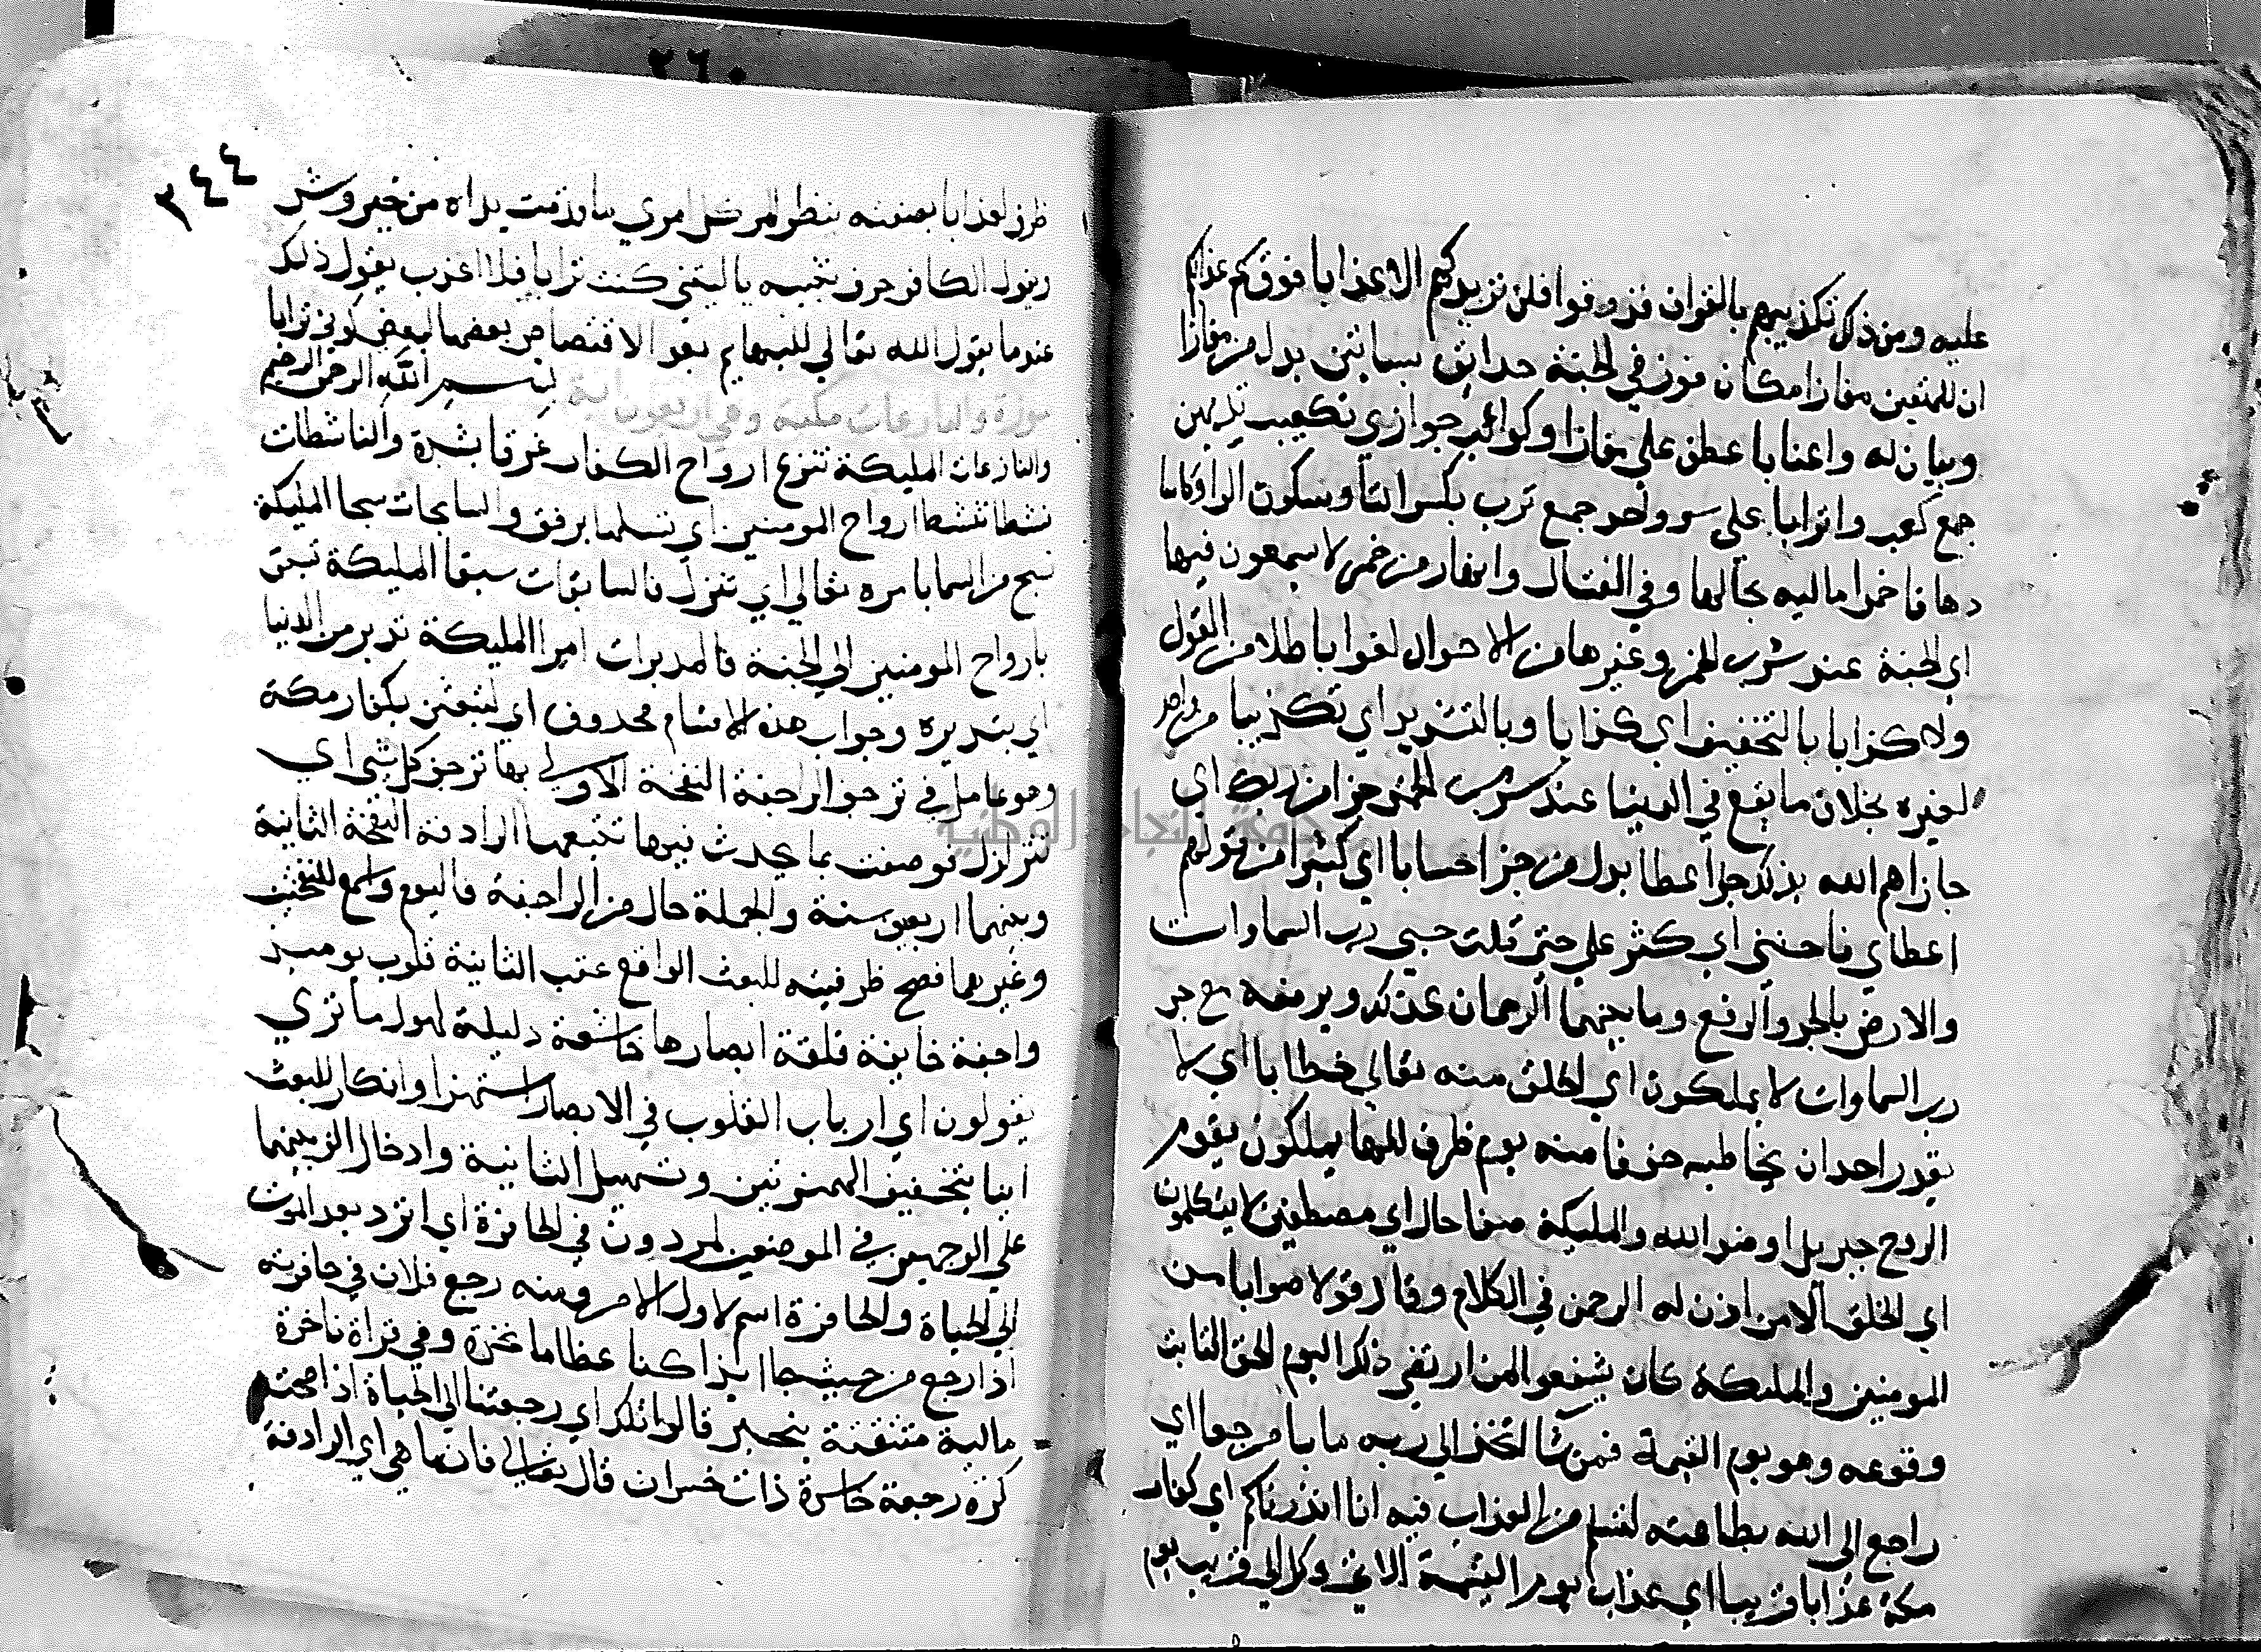 عليه ومن ذلك تكذيبهم بالقران فذوقوا فلن نزيدكم الا عذابا فوق عذابكم
ان للمتقين مفازا مكان فوز في الجنة حدائق بساتين بدل من مفازا
وبيان له واعنابا عطف على مفازا وكواعب جواري تكعبت ثديهن
جمع كعب واترابا على سن واحد جمع ترب بكسر التا وسكون الرا وكاسا
دهاقا خمرا مالية محالها وفي القتال وانهار من خمر لا يسمعون فيها
اي الجنة عند شرب الخمر وغيرها من الاحوال لغوا باطلا من القول
ولا كذابا بالتخفيف اي كذابا وبالتشديد اي تكذيبا من واحد
لغيره بخلاف ما يقع في الدنيا عند شرب الخمر جزا من ربك اي
جازاهم الله بذلك جزا عطا بدل من جزا حسابا اي كثيرا من قولهم
اعطاي فاحسني اي كثر علي حتى قلت حسبي رب السماوات
والارض بالجر والرفع وما بينهما الرحمان كذلك وبرفعه مع جر
رب السماوات لا يملكون اي الخلق منه تعالى خطابا اي لا
يقدر احد ان يخاطبه خوفا منه يوم ظرف للا يملكون يقوم
الروح جبريل او جند الله والمليكة صفا حال اي مصطفين لا يتكلمون
اي الخلق الا من اذن له الرحمن في الكلام وقال قولا صوابا من
المومنين والمليكة كان يشفعوا لمن ارتضى ذلك اليوم الحق الثابت
وقوعه وهو يوم القيمة فمن شا اتخذ الى ربه مابا مرجعا اي
راجع الى الله بطاعته ليسلم من العذاب فيه انا انذرناكم اي كفار
مكة عذابا قريبا اي عذاب يوم القيمة الاتي وكل اتي قريب يوم
٣٤٤
ظرف لعذابا بصفته ينظر المر كل امري ما قدمت يداه من خير وشر
ويقول الكافر حرف تنبيه يا ليتني كنت ترابا فلا اعذب يقول ذلك
عندما يقول الله تعالى للبهايم بعد الاقتصاص بعضها لبعض كوني ترابا
سورة والنازعات مكية وهي اربعون اية بسم الله الرحمن الرحيم
والنازعات المليكة تنزع ارواح الكفار غرقا بشدة والناشطات
نشطا تنشط ارواح المومنين اي تسلها برفق والسابحات سبحا المليكة
تسبح من السما بامره تعالى اي تنزل فالسابقات سبقا المليكة تسبق
بارواح المومنين الى الجنة فالمدبرات امرا المليكة تدبر من الدنيا
اي بتدبيره وجواب هذه الاقسام محذوف اي لتبعثن يكفار مكة
وهو عامل في ترجف الراجفة النفخة الاولى بها ترجف كل شي اي
تتزلزل فوصفت بما يحدث منها تتبعها الرادفة النفخة الثانية
وبينهما اربعون سنة والجملة حال من الراجفة فاليوم واسع للنفختين
وغيرهما فصح ظرفيته للبعث الواقع عقب الثانية قلوب يوميذ
واجفة خايفة قلقة ابصارها خاشعة دليلة لهول ما ترى
يقولون اي ارباب القلوب في الابصار استهزا وانكار للبعث
اينا بتحقيق الهمزتين وتسهيل الثانية وادخال الف بينهما
على الوجهين في الموضعين لمردودون في الحافرة اي انرد بعد الموت
الى الحياة والحافرة اسم لاول الامر ومنه رجع فلان في حافرته
اذا رجع من حيث جا ايذا كنا عظاما نخرة وفي قراة ناخرة
مالية متفتتة بنحيير قالوا تلك اي رجعتنا الى الحياة اذا صحت
كرة رجعة خاسرة ذات خسران قال تعالى فانما هي اي الرادفة
٢٦٠
جامعة النجاح الوطنية